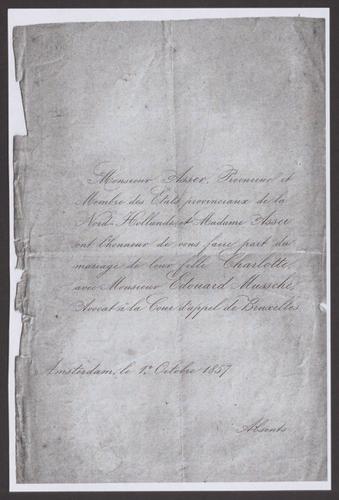 Monsieur Asser, Procureur et
Membre des États provinciaux de la
Nord-Hollande et Madame Asser
ont l'honneur de vous faire part du
mariage de leur fille Charlotte
avec Monsieur Edouard Mussche,
Avocat à la Cour d'appel de Bruxelles
Amsterdam, le 1r Octobre 1857
Absents